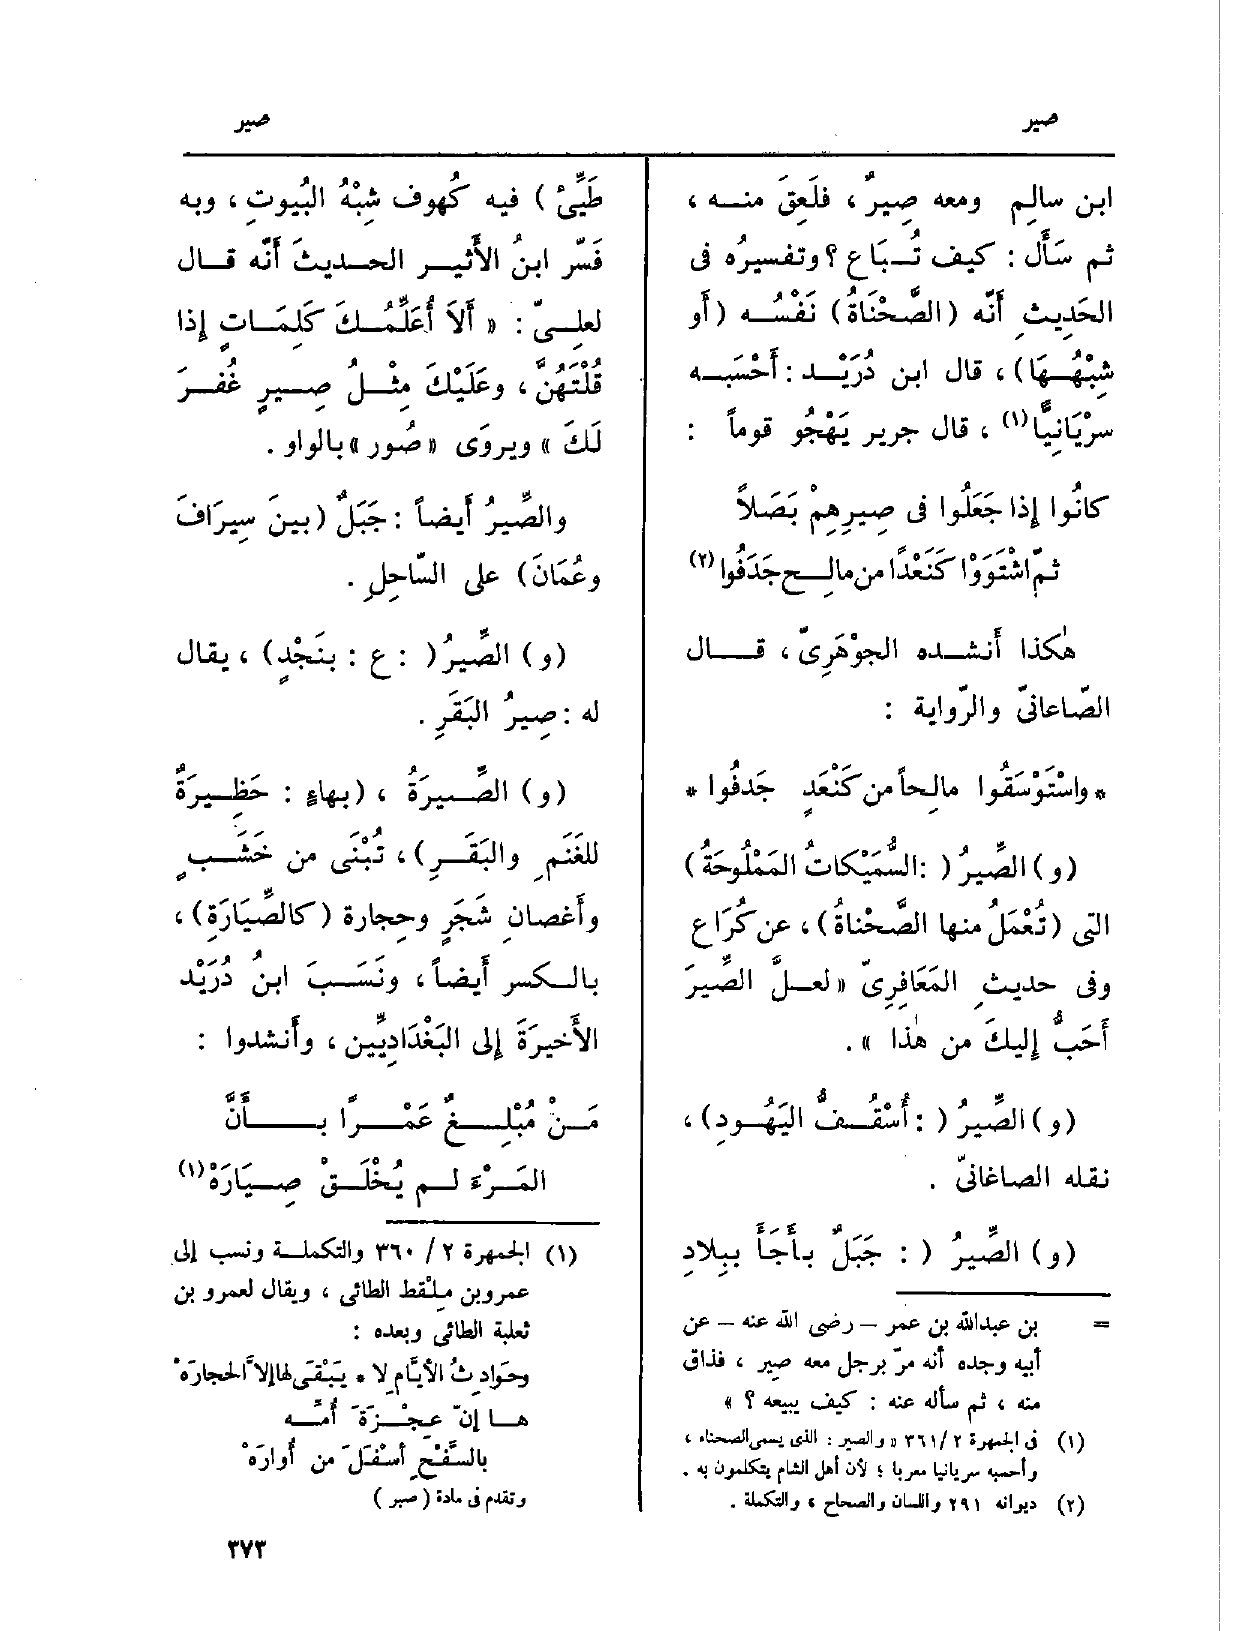 صير
صير
ابن سالِم ومعه صِيرٌ ، فلَعِقَ منه ،
ثم سَأَل : كيف تُبَاع ؟ وتفسيرُه فى
الحَدِيثِ أَنّه (الصَّحْنَاةُ) نَفْسُه (أَو
شِبْهُهَا) ، قال ابن دُرَيْد : أَحْسَبَه
سرْيَانِيًّا (١) ، قال جرير يَهْجُو قوماً :
كانُوا إِذا جَعَلُوا فى صِيرِهِمْ بَصَلاً
ثمّ اشْتَوَوْا كَنْعَدًا من مالِحٍ جَدَفُوا (٢)
هٰكذا أَنشده الجوْهَرِىّ ، قال
الصّاغانىّ والرّواية :
* واسْتَوْسَقُوا مالِحاً من كَنْعَدٍ جَدفُوا *
(و) الصِّيرُ ( : السُّمَيْكاتُ المَمْلُوحَةُ )
التى (تُعْمَلُ منها الصَّحْناةُ) ، عن كُرَاع
وفى حديثِ المَعَافِرِىّ « لعلَّ الصِّيرَ
أَحَبُّ إِليكَ من هٰذا » .
(و) الصِّيرُ ( : أُسْقُفُّ اليَهُودِ) ،
نقله الصاغانىّ .
(و) الصِّيرُ ( : جَبَلٌ بأَجَأَ ببِلادِ
= بن عبدالله بن عمر – رضى الله عنه – عن
أبيه وجده أنه مرّ برجل معه صير ، فذاق
منه ، ثم سأله عنه : كيف يبيعه ؟ »
(١) فى الجمهرة ٢ /٣٦١ « والصير : الذى يسمى الصحناه ،
وأحسبه سريانيا معربا ؛ لأن أهل الشام يتكلمون به .
(٢) ديوانه ٢٩١ واللسان والصحاح ، والتكملة .
طَيِّئ ) فيه كُهوف شِبْهُ البُيوتِ ، وبه
فَسّر ابنُ الأَثيرِ الحديثَ أَنّه قال
لعلىّ : « أَلاَ أُعَلِّمُكَ كَلِمَاتٍ إِذا
قُلْتَهُنّ ، وعَلَيْكَ مِثْلُ صِيرٍ غُفِرَ
لَكَ » ويروَى « صُور » بالواو .
والصِّيرُ أَيضاً : جَبَلٌ (بينَ سِيرَافَ
وعُمَانَ) على السّاحِلِ .
(و) الصِّيرُ ( : ع : بنَجْدٍ) ، يقال
له : صِيرُ البَقَرِ .
(و) الصِّيرَةُ ، (بهاءٍ : حَظِيرَةٌ
للغَنَمِ والبَقَرِ) ، تُبْنَى من خَشَبٍ
وأَغصانِ شَجَرٍ وحِجارة (كالصِّيَارَةِ) ،
بالكسر أَيضاً ، ونَسَبَ ابنُ دُرَيْد
الأَخيرَةَ إِلى البَغْدَادِيِّين ، وأَنشدوا :
مَنْ مُبْلِغٌ عَمْرًا بأَنَّ
المَرْءَ لم يُخْلَقْ صِيَارَهْ (١)
(١) الجمهرة ٢ / ٣٦٠ والتكملة ونسب إلى
عمرو بن ملْقط الطائى ، ويقال لعمرو بن
ثعلبة الطائى وبعده :
وحَوَادِثُ الأَيَّامِ لا * يَبْقَى لها إلاّ الحجارَهْ
ها إنّ عِجْزَةَ أمّه
بالسَّفْحِ أسْفَلَ من أُوَارَهْ
وتقدم فى مادة ( صبر )
٣٧٣